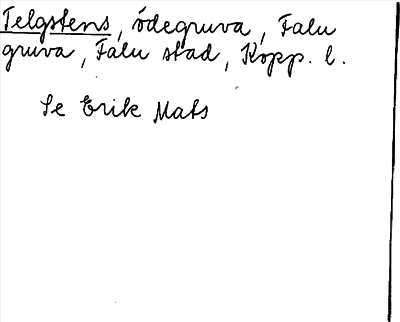 Telgstens, ödegruva, Falu
gruva, Falu stad, Kopp. l.
Se Erik Mats